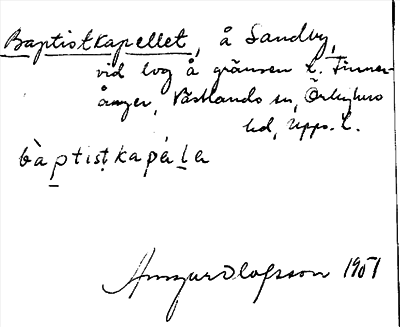 Baptistkapellet, å Sandby,
vid väg å gränsen t. Finner-
ånger, Västlands sn, Örbyhus
hd, Upps. l.
bàptistkapäla
Ansgur Olofsson 1951